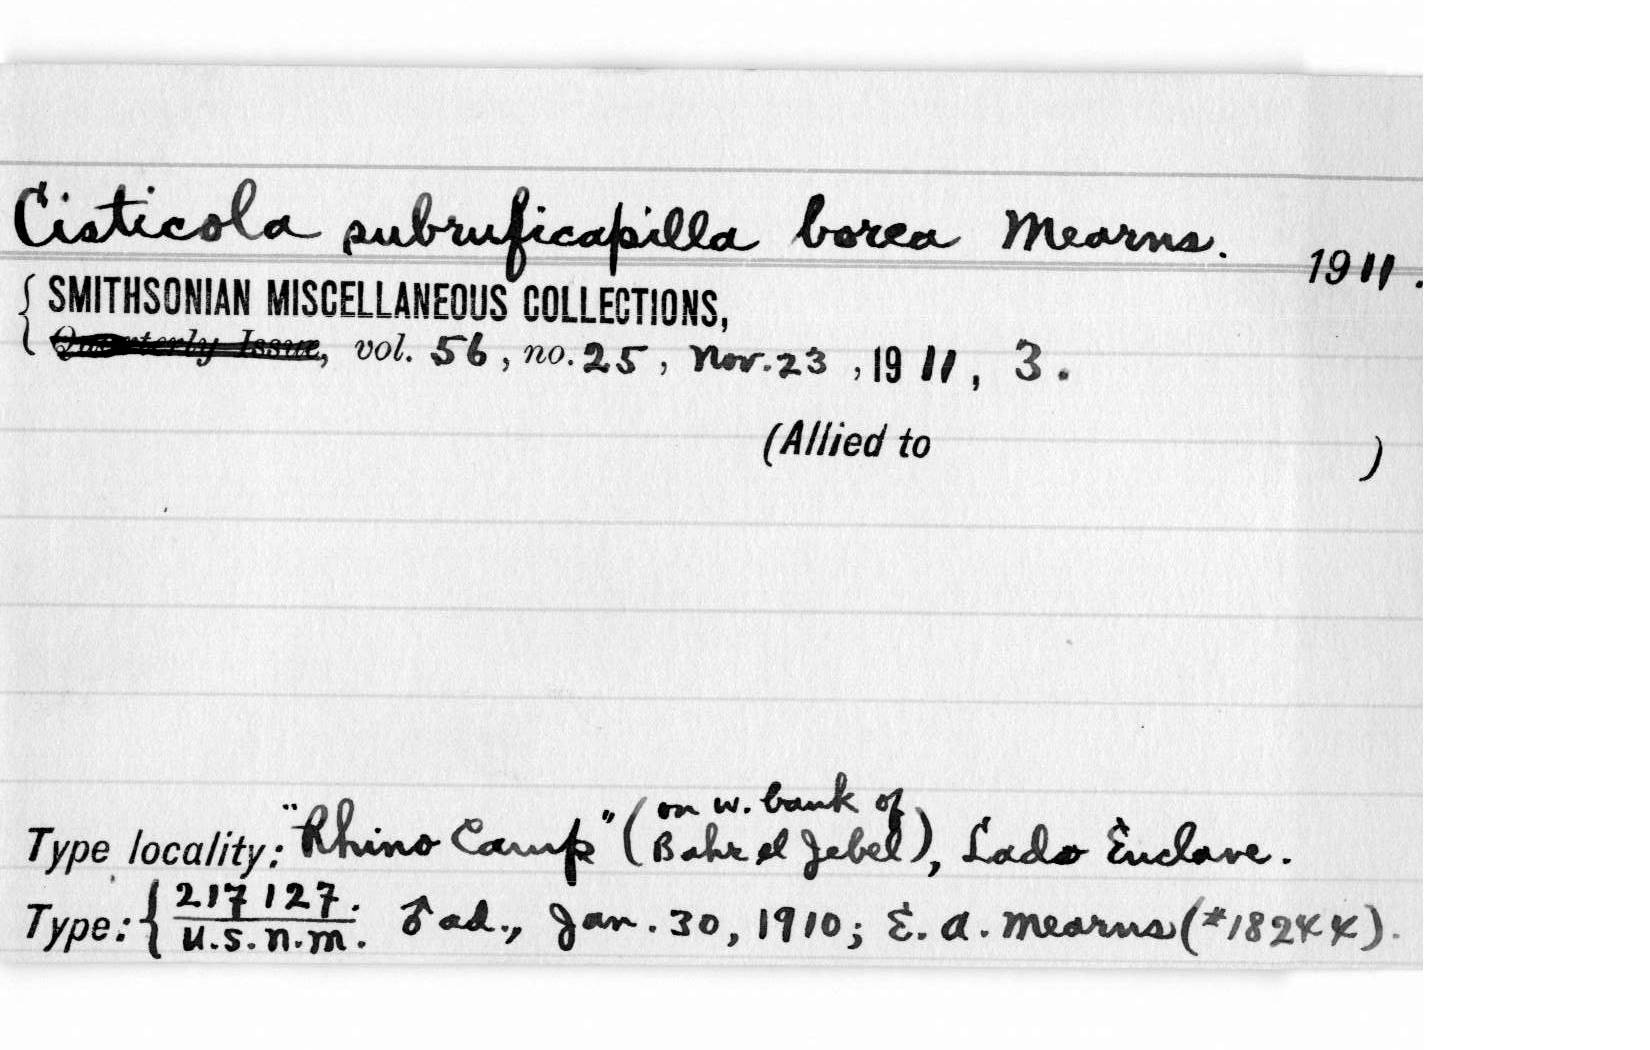 Cisticola subruficapilla borea Mearns. 1911.
SMITHSONIAN MISCELLANEOUS COLLECTIONS,
Quarterly Issue, vol. 56, no. 25, Nov. 23, 1911, 3.
(Allied to )
on w. bank of
Type locality: "Rhino Camp" (Bahr el Jebel), Lado Enclave.
Type: { 217127. ♂ ad., Jan. 30, 1910; E. A. Mearns (#18244).
U.S.N.M.